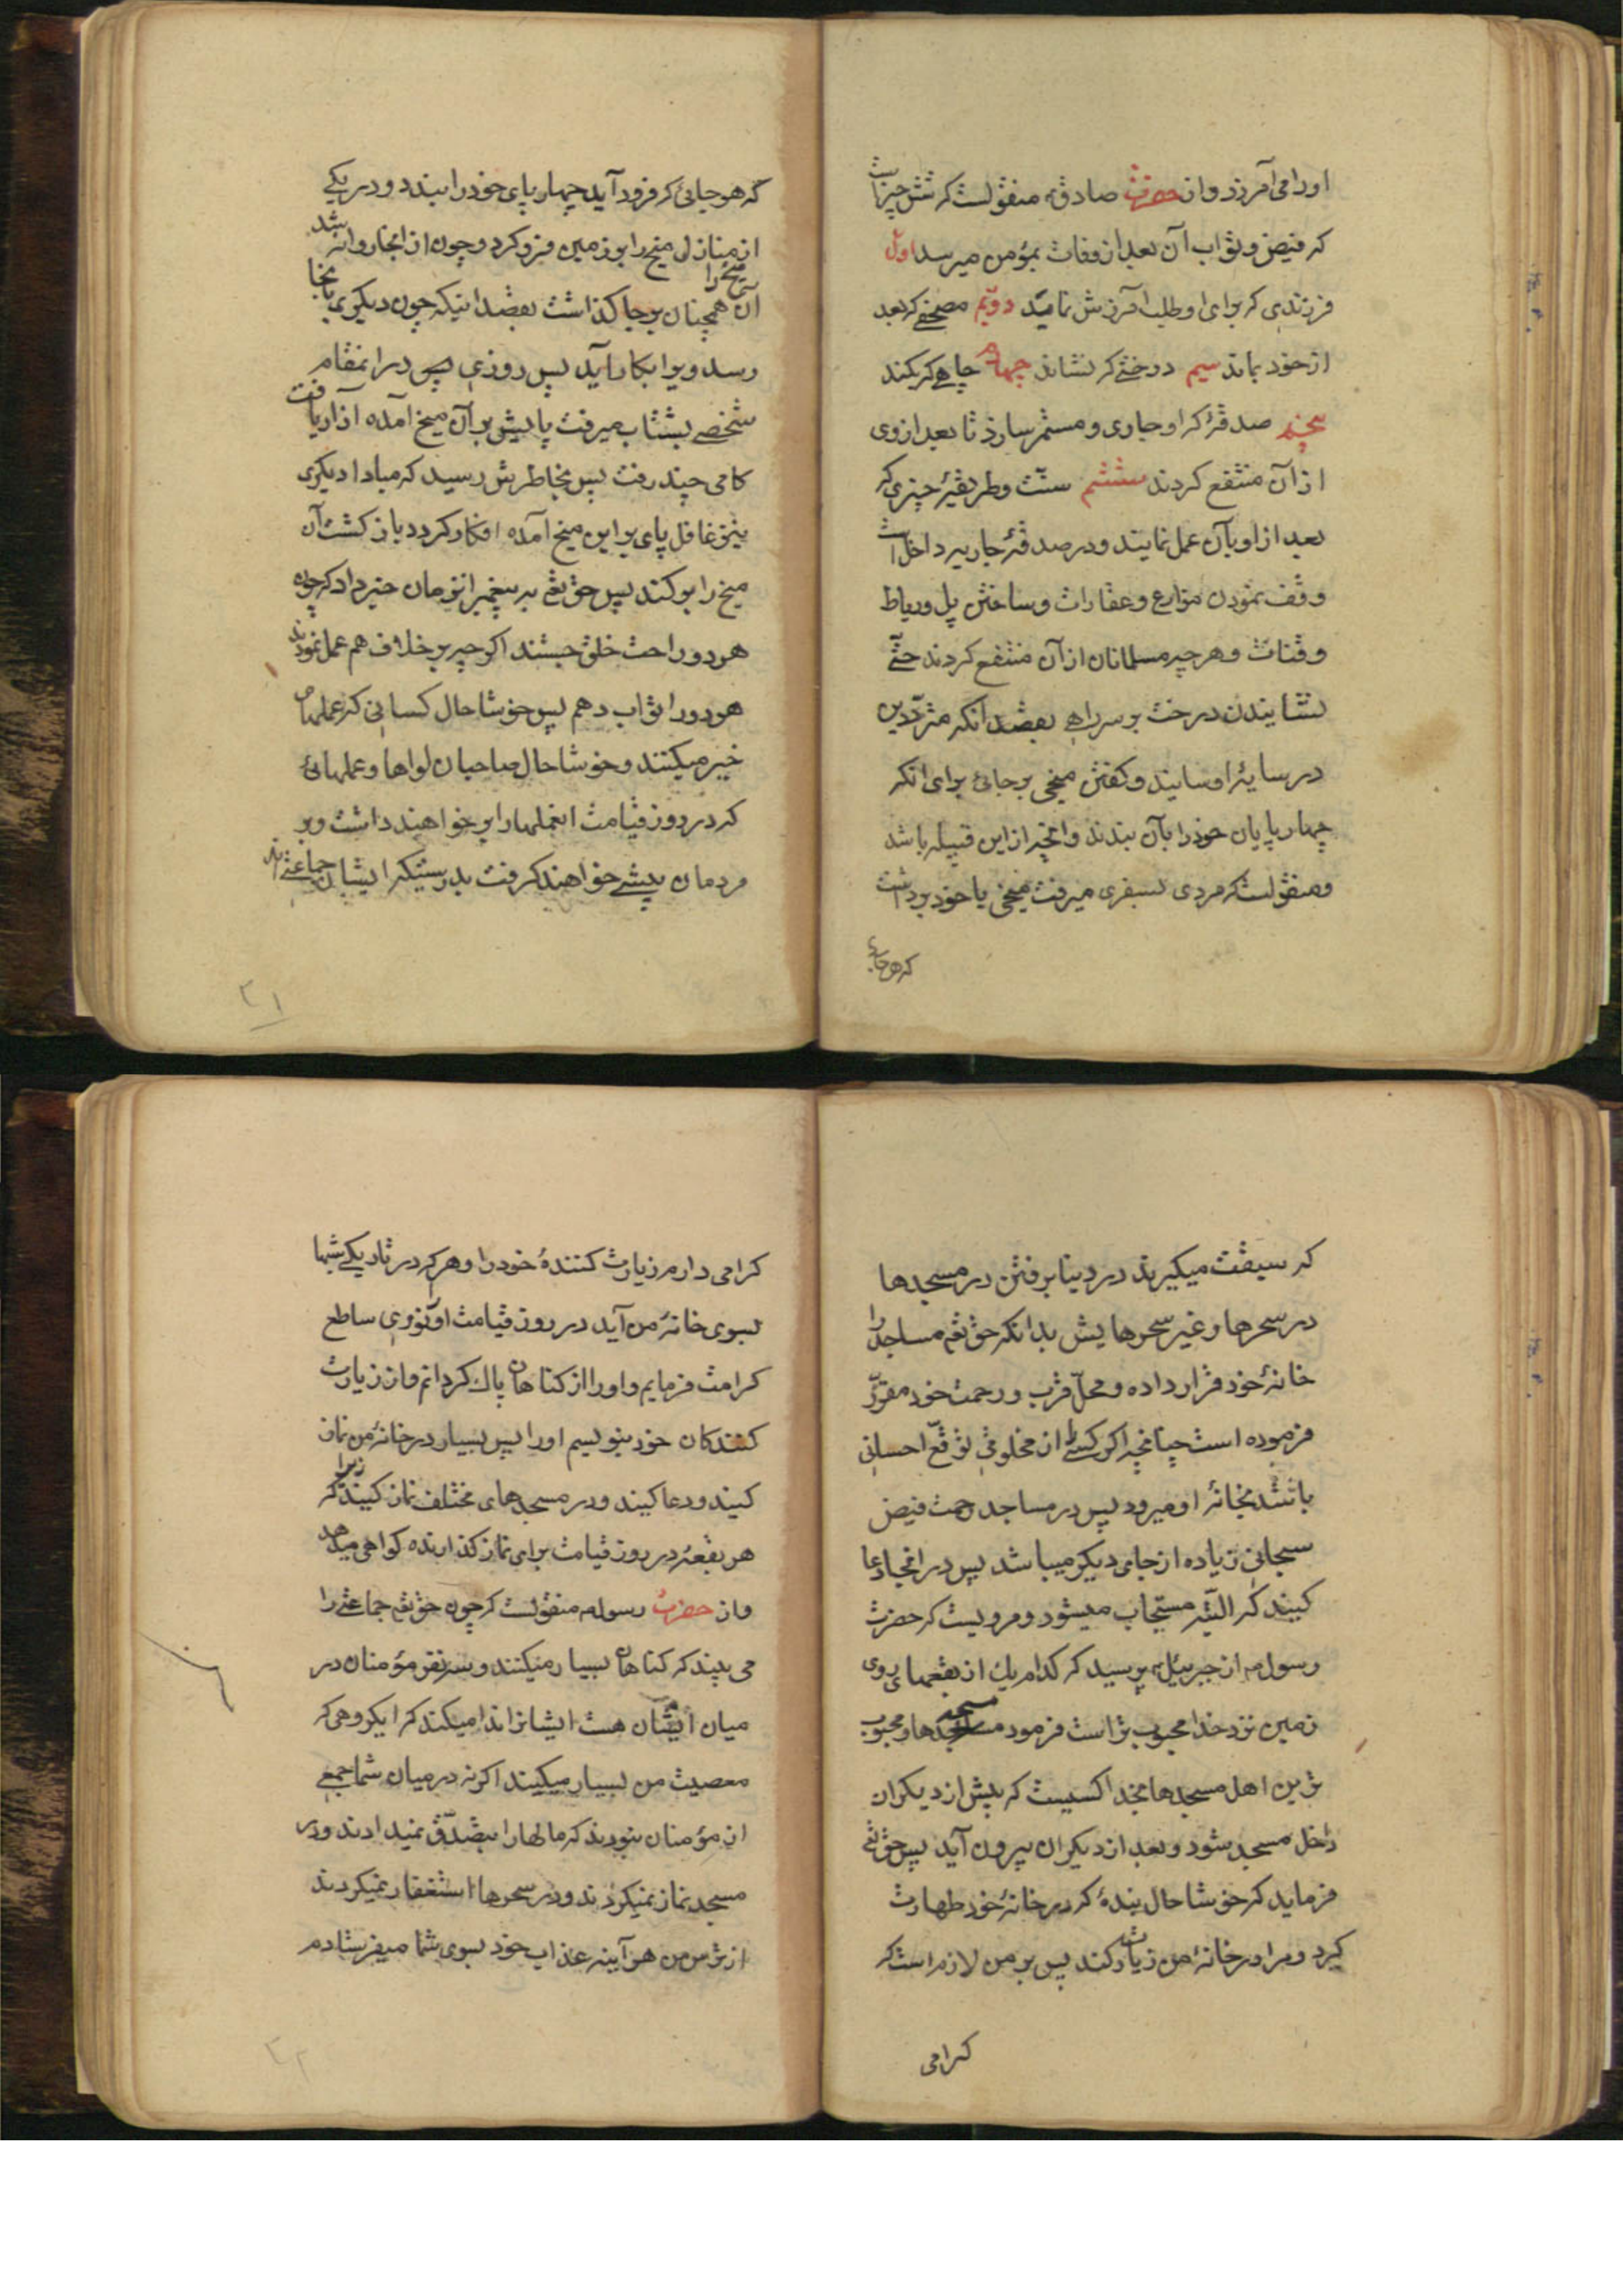 اورا می آمرزد و از حضرت صادق؏ منقولست که شش چیز است
که فیض و ثواب آن بعد از وفات بمؤمن میرسد اول
فرزندی که برای او طلب آمرزش نماید دویم مصحفی که بعد
از خود بماند سیم درختی که نشاند چهارم چاهی که بکند
پنجم صدقهٔ که او جاری و مستمر سازد تا بعد از وی
از آن منتفع کردند ششم سنّت و طریقهٔ خیری که
بعد از او بآن عمل نمایند و در صدقهٔ جاریه داخل است
وقف نمودن مزارع و عقارات و ساختن پل و رباط
و قنات و هر چه مسلمانان از آن منتفع کردند حتّی
نشانیدن درخت بر سر راهی بقصد آنکه متردّدین
در سایهٔ او سایند و کفتن میخی بر جائی برای انکه
چهار پایان خود را بآن بندند و انچه از این قبیله باشد
و منقولست که مردی بسفری میرفت میخی با خود برداشت
که هر جائی
که هر جائی که فرود آید چهار پای خود را ببندد و در یکی
از منازل میخ را بر زمین فرو کرد و چون از انجا روانه شد
آن میخ را همچنان بر جا کذاشت بقصد اینکه چون دیکری بانجا
رسد ویرا بکار آید پس روزی پس در انمقام
شخصی بشتاب میرفت پایش بر آن میخ آمده آزار یافت
کامی چند رفت پس بخاطرش رسید که مبادا دیکری
نیز غافل پای بر این میخ آمده افکار کردد باز کشت آن
میخ را بر کند پس حق تعٰ به پیغمبر انزمان خبر داد که چون
هر دو راحت خلق جستند اکر چه بر خلاف هم عمل نمودند
هر دو را ثواب دهم پس خوشا حال کسانی که عملهای
خیر میکنند و خوشا حال صاحبان لواها و عملهائی
که در روز قیامت انعملها را بر خواهند داشت و بر
مردمان پیشی خواهند کرفت بدرستیکه ایشان جماعتی اند
۲۱
که سبقت میکیرند در دنیا برفتن در مسجدها
در سحرها و غیر سحرها پیش بدانکه حق تعٰ مساجد را
خانهٔ خود قرار داده و محلّ قرب و رحمت خود مقرّر
فرموده است چنانچه اکر کسی را از مخلوقی توقّع احسانی
باشد بخانهٔ او میرود پس در مساجد رحمت فیض
سبحانی زیاده از جای دیکر میباشد پس در انجا دعا
کنید که البتّه مستجاب میشود و مرویست که حضرت
رسول ص از جبرئیل؏ پرسید که کدام یك از بقعهای روی
زمین نزد خدا محبوب تر است فرمود مسجدها و محبوب
ترین اهل مسجدها بخدا کسیست که پیش از دیکران
داخل مسجد شود و بعد از دیکران بیرون آید پس حق تعٰ
فرماید که خوشا حال بندهٔ که در خانهٔ خود طهارت
کیرد و مرا در خانهٔ من زیارت کند پس بر من لازم است که
کرامی
کرامی دارم زیارت کنندهٔ خود را و هر که در تاریکی شبها
بسوی خانهٔ من آید در روز قیامت او را نوری ساطع
کرامت فرمایم و او را از کناهان پاك کردانم و از زیارت
کنندکان خود بنویسم او را پس بسیار در خانهٔ من نماز
کنید و دعا کنید و در مسجدهای مختلف نماز کنید زیرا که
هر بقعهٔ در روز قیامت برای نماز کذارنده کواهی میدهد
و از حضرت رسول ص منقولست که چون حق تعٰ جماعتی را
می بیند که کناهان بسیار میکنند و سه نفر مؤمنان در
میان ایشان هست ایشانرا ندا میکند که ایکروهی که
معصیت من بسیار میکنید اکر نه در میان شما جمعی
از مؤمنان بودند که مالها را بتصدّق میدادند و در
مسجد نماز میکردند و در سحرها استغفار میکردند
از ترس من هر آینه عذاب خود بسوی شما میفرستادم
۲۲